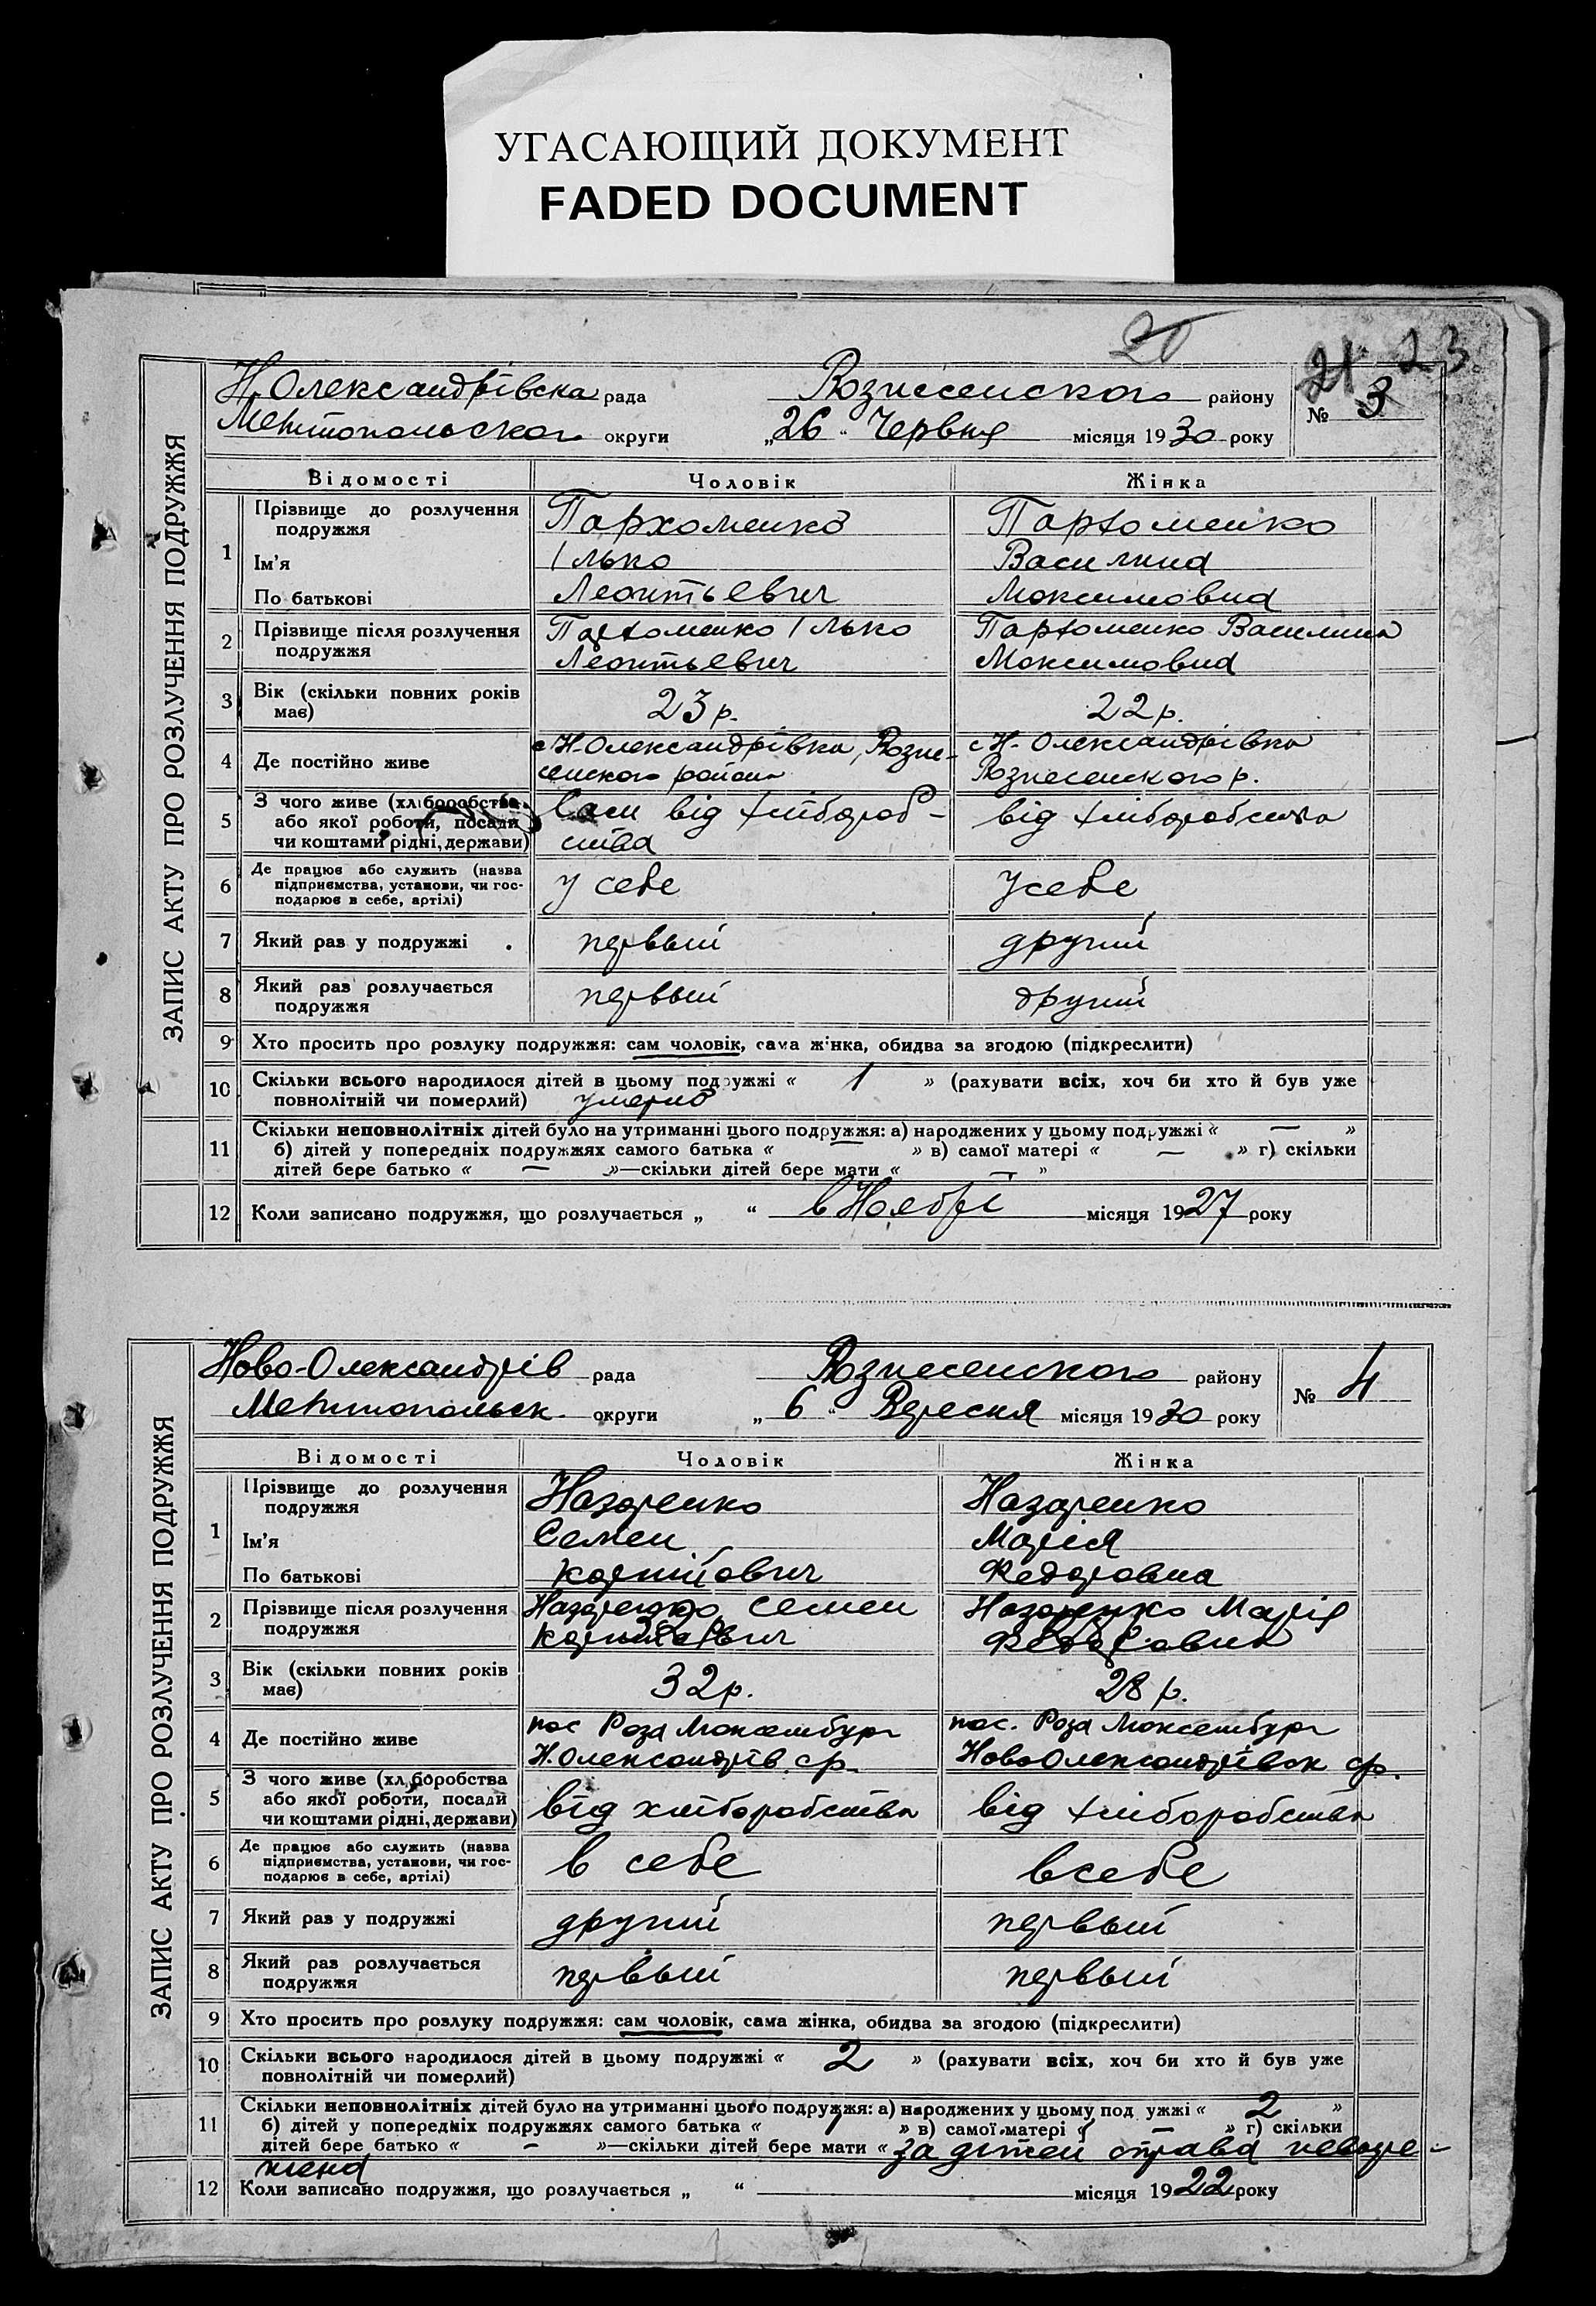 УГАСАЮЩИЙ ДОКУМЕНТ
FADED DOCUMENT
20
21 23
ЗАПИС АКТУ ПРО РОЗЛУЧЕННЯ ПОДРУЖЖЯ
Н Олександрівска рада Вознесенского району № 3
Мелітопольског округи „26“ Червня місяця 1930 року
Відомості Чоловік Жінка
1 Прізвище до розлучення подружжя Пархоменко Пархоменко
Ім'я Ілько Василина
По батькові Леонтьевич Максимовна
2 Прізвище після розлучення Пархоменко Ілько Пархоменко Василина
подружжя Леонтьевич Максимовна
3 Вік (скільки повних років має) 23 р. 22 р.
4 Де постійно живе с Н-Олександрівка, Возне- с Н-Олександрівка
сенского район Вознесенского р.
5 З чого живе (хліборобства
або якої роботи, посади від хлібороб- від хліборобства
чи коштами рідні, держави) ства
6 Де працює або служить (назва
підприємства, установи, чи гос- у себе у себе
подарює в себе, артілі)
7 Який раз у подружжі . первый другий
8 Який раз розлучається
подружжя первый другий
9 Хто просить про розлуку подружжя: сам чоловік, сама жінка, обидва за згодою (підкреслити)
10 Скільки всього народилося дітей в цьому подружжі « 1 » (рахувати всіх, хоч би хто й був уже
повнолітній чи померлий) умерло
11 Скільки неповнолітніх дітей було на утриманні цього подружжя: а) народжених у цьому подружжі « — »
б) дітей у попередніх подружжях самого батька « — » в) самої матері « — » г) скільки
дітей бере батько « — »—скільки дітей бере мати « — »
12 Коли записано подружжя, що розлучається „ “ в Ноябрі місяця 1927 року
ЗАПИС АКТУ ПРО РОЗЛУЧЕННЯ ПОДРУЖЖЯ
Ново-Олександрів рада Вознесенского району № 4
Мелітопольск. округи „6“ Вересня місяця 1930 року
Відомості Чоловік Жінка
1 Прізвище до розлучення подружжя Назаренко Назаренко
Ім'я Семен Марія
По батькові Корнийович Федоровна
2 Прізвище після розлучення Назаренко Семен Назаренко Марія
подружжя Корнийович Федоровна
3 Вік (скільки повних років має) 32 р. 28 р.
4 Де постійно живе пос Роза Люксембург пос. Роза Люксембург
Н.Олександрів. ср. НовоОлександрівск ср.
5 З чого живе (хліборобства
або якої роботи, посади від хліборобства від хліборобства
чи коштами рідні, держави)
6 Де працює або служить (назва
підприємства, установи, чи гос- в себе в себе
подарює в себе, артілі)
7 Який раз у подружжі другий первый
8 Який раз розлучається
подружжя первый первый
9 Хто просить про розлуку подружжя: сам чоловік, сама жінка, обидва за згодою (підкреслити)
10 Скільки всього народилося дітей в цьому подружжі « 2 » (рахувати всіх, хоч би хто й був уже
повнолітній чи померлий)
11 Скільки неповнолітніх дітей було на утриманні цього подружжя: а) народжених у цьому подружжі « 2 »
б) дітей у попередніх подружжях самого батька « 1 » в) самої матері « — » г) скільки
дітей бере батько « — »—скільки дітей бере мати « за дітей справа
12 Коли записано подружжя, що розлучається „ “ місяця 1922 року